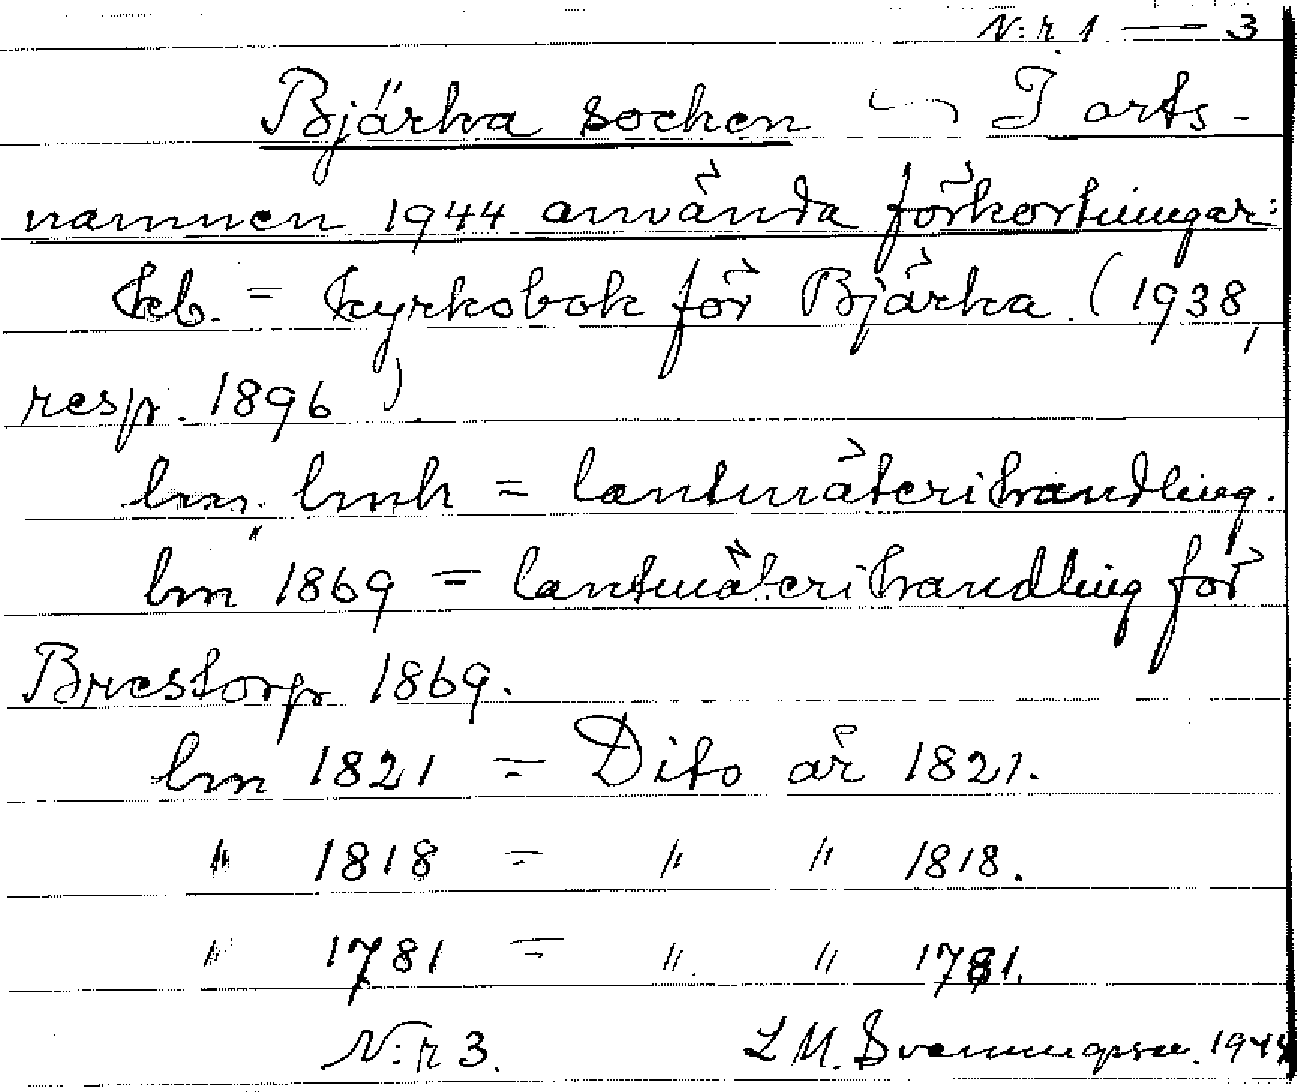 N:r 1 — 3
Bjärka socken ~ I orts-
namnen 1944 använda förkortningar:
kb. = kyrkobok för Bjärka. (1938,
resp. 1896).
lm, lmh = lantmäterihandling.
lm 1869 = lantmäterihandling för
Brestorp 1869.
lm 1821 = Dito år 1821.
" 1818 = " " 1818.
" 1781 = " " 1781.
N:r 3. L M. Svenungsson. 1944